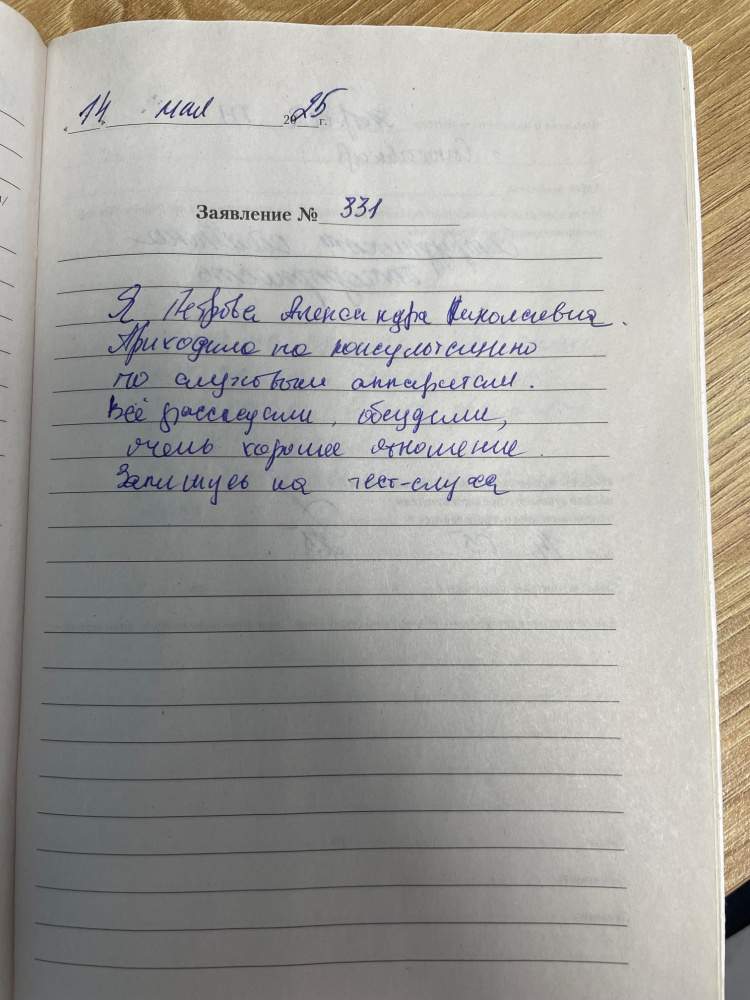 "14" мая 2025 г.
Заявление № 331
Я Петрова Александра Николаевна.
Приходила на консультацию
по слуховым аппаратам.
Всё рассказали, обсудили,
очень хорошее отношение.
Запишусь на тест-слуха